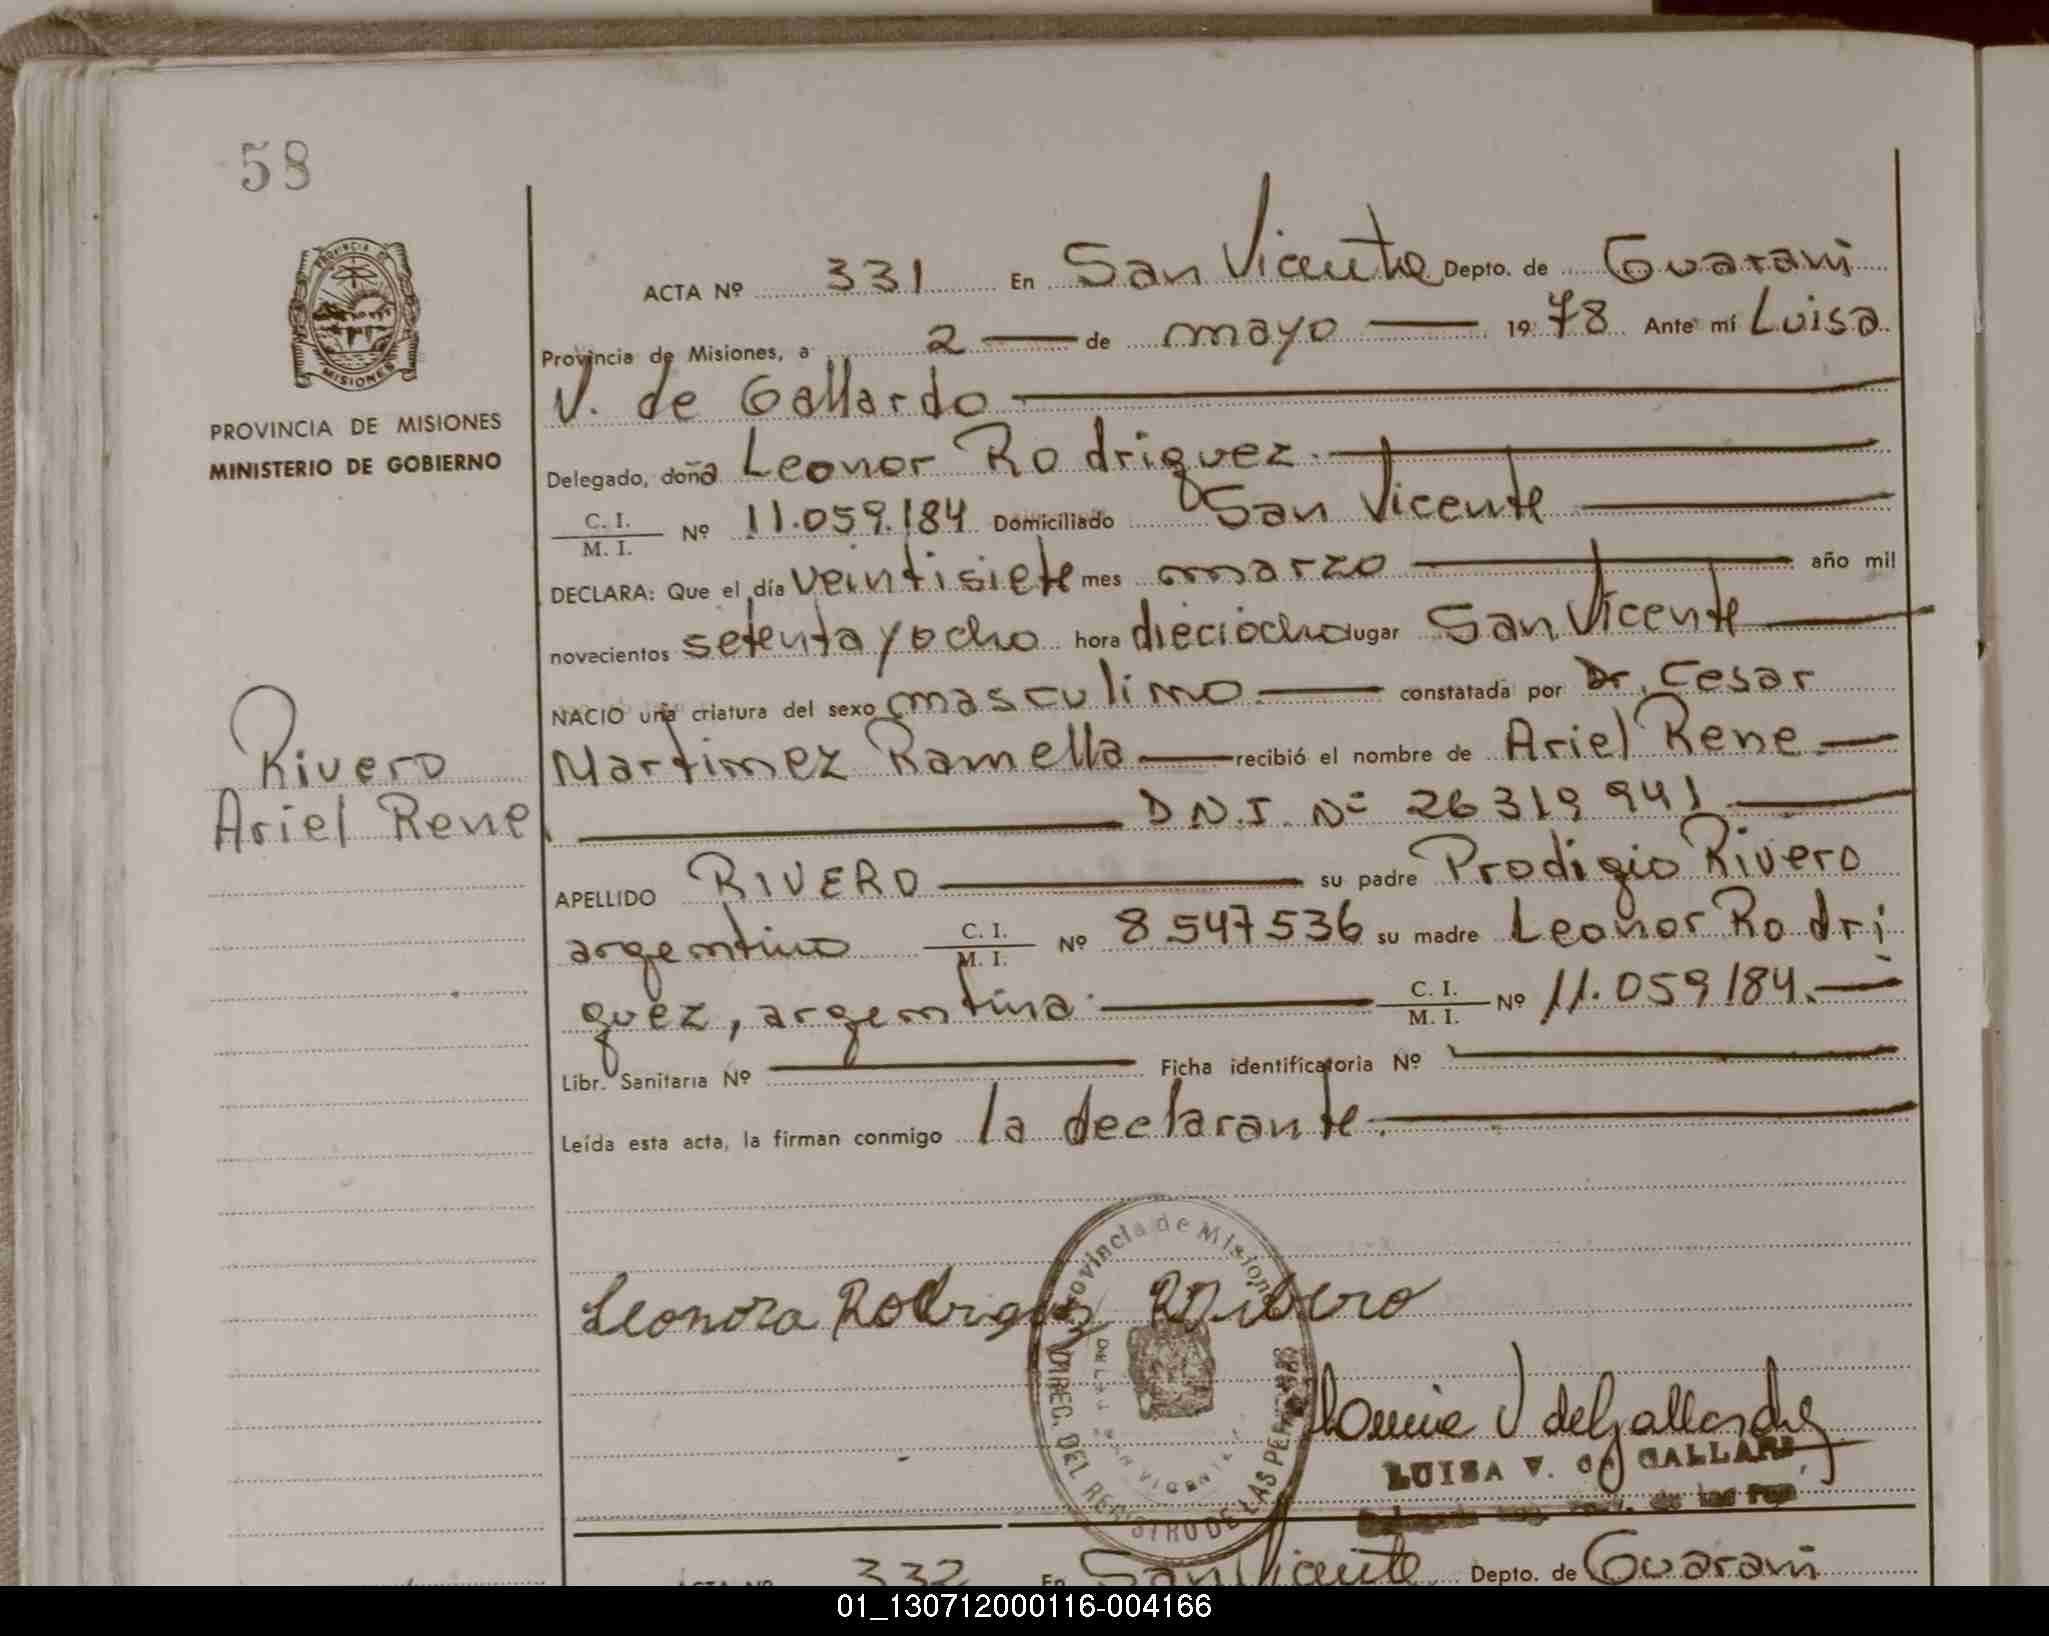 58
PROVINCIA DE
MISIONES
PROVINCIA DE MISIONES
MINISTERIO DE GOBIERNO
Rivero
Ariel Rene
ACTA Nº 331 En San Vicente Depto. de Guarani
Provincia de Misiones, a 2 — de mayo — 19 78 Ante mí Luisa
V. de Gallardo —
Delegado, doña Leonor Rodriguez. —
C. I. / M. I. Nº 11.059.184 Domiciliado San Vicente —
DECLARA: Que el día veintisiete mes marzo — año mil
novecientos setenta y ocho hora dieciocho lugar San Vicente —
NACIO una criatura del sexo masculino — constatada por Dr. Cesar
Martinez Ramella — recibió el nombre de Ariel Rene —
— D.N.I. Nº 26319941 —
APELLIDO RIVERO — su padre Prodigio Rivero
argentino C. I. / M. I. Nº 8.547536 su madre Leonor Rodri
guez, argentina — C. I. / M. I. Nº 11.059184. —
Libr. Sanitaria Nº — Ficha identificatoria Nº —
Leída esta acta, la firman conmigo la declarante. —
Provincia de Misiones
DIREC. DEL REGISTRO DE LAS PERSONAS
SAN VICENTE
Leonora Rodriguez
V de Gallardo
LUISA V. de GALLARDO
de las Pers
ACTA Nº 332 En San Vicente Depto. de Guarani
01_130712000116-004166